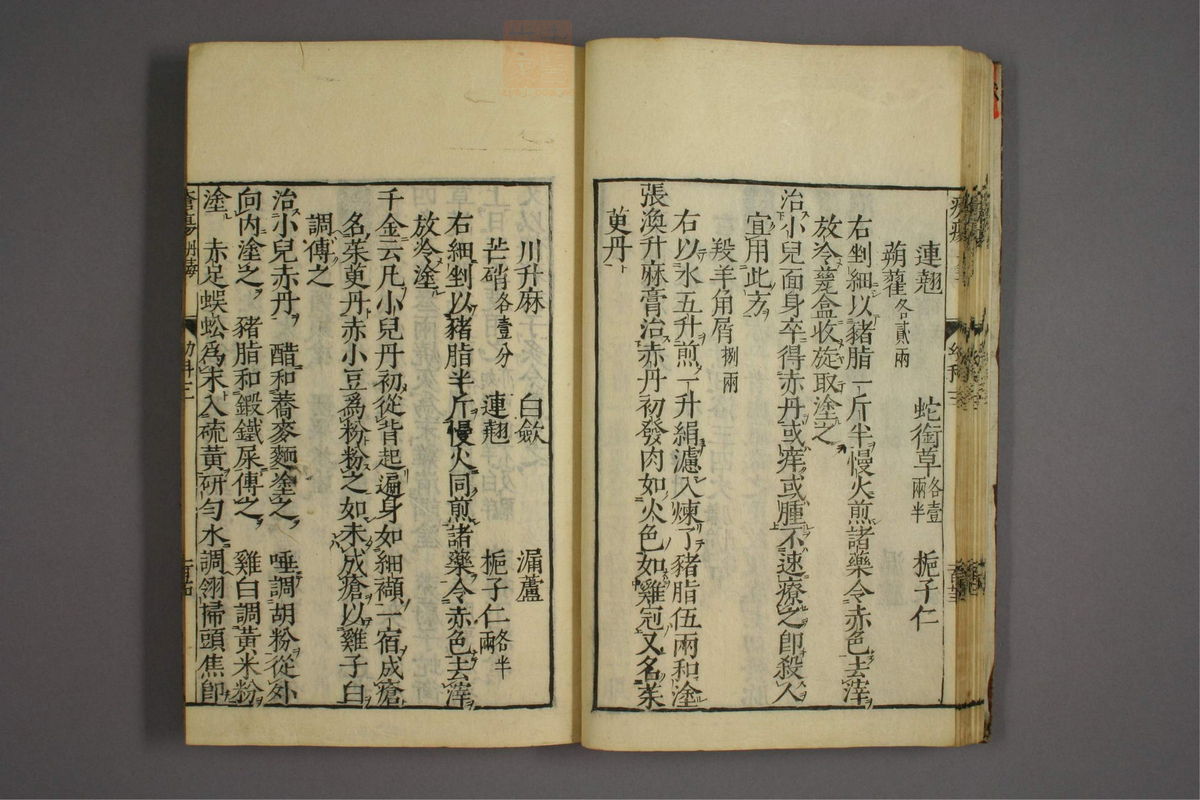 連翹 蛇銜草各壹兩半 梔子仁
蒴藋各貳兩
右剉細以豬脂一斤半慢火煎諸藥令赤色去滓
放冷㽅盒收旋取塗之
治小兒面身卒得赤丹或痒或腫不速療之即殺人
宜用此方
羖羊角屑捌兩
右以水五升煎一升絹濾入煉了豬脂伍兩和塗
張渙升麻膏治赤丹初發肉如火色如雞冠又名茱
萸丹
川升麻 白斂 漏蘆
芒硝各壹分 連翹 梔子仁各半兩
右細剉以豬脂半斤慢火同煎諸藥令赤色去滓
放冷塗
千金云凡小兒丹初從背起遍身如細纈一宿成瘡
名茱萸丹赤小豆為粉粉之如未成瘡以雞子白
調傅之
治小兒赤丹 醋和蕎麥麵塗之 唾調胡粉從外
向內塗之 豬脂和鍛鐵屎傅之 雞白調黃米粉
塗 赤足蜈蚣為末入硫黃研勻水調翎掃頭焦即